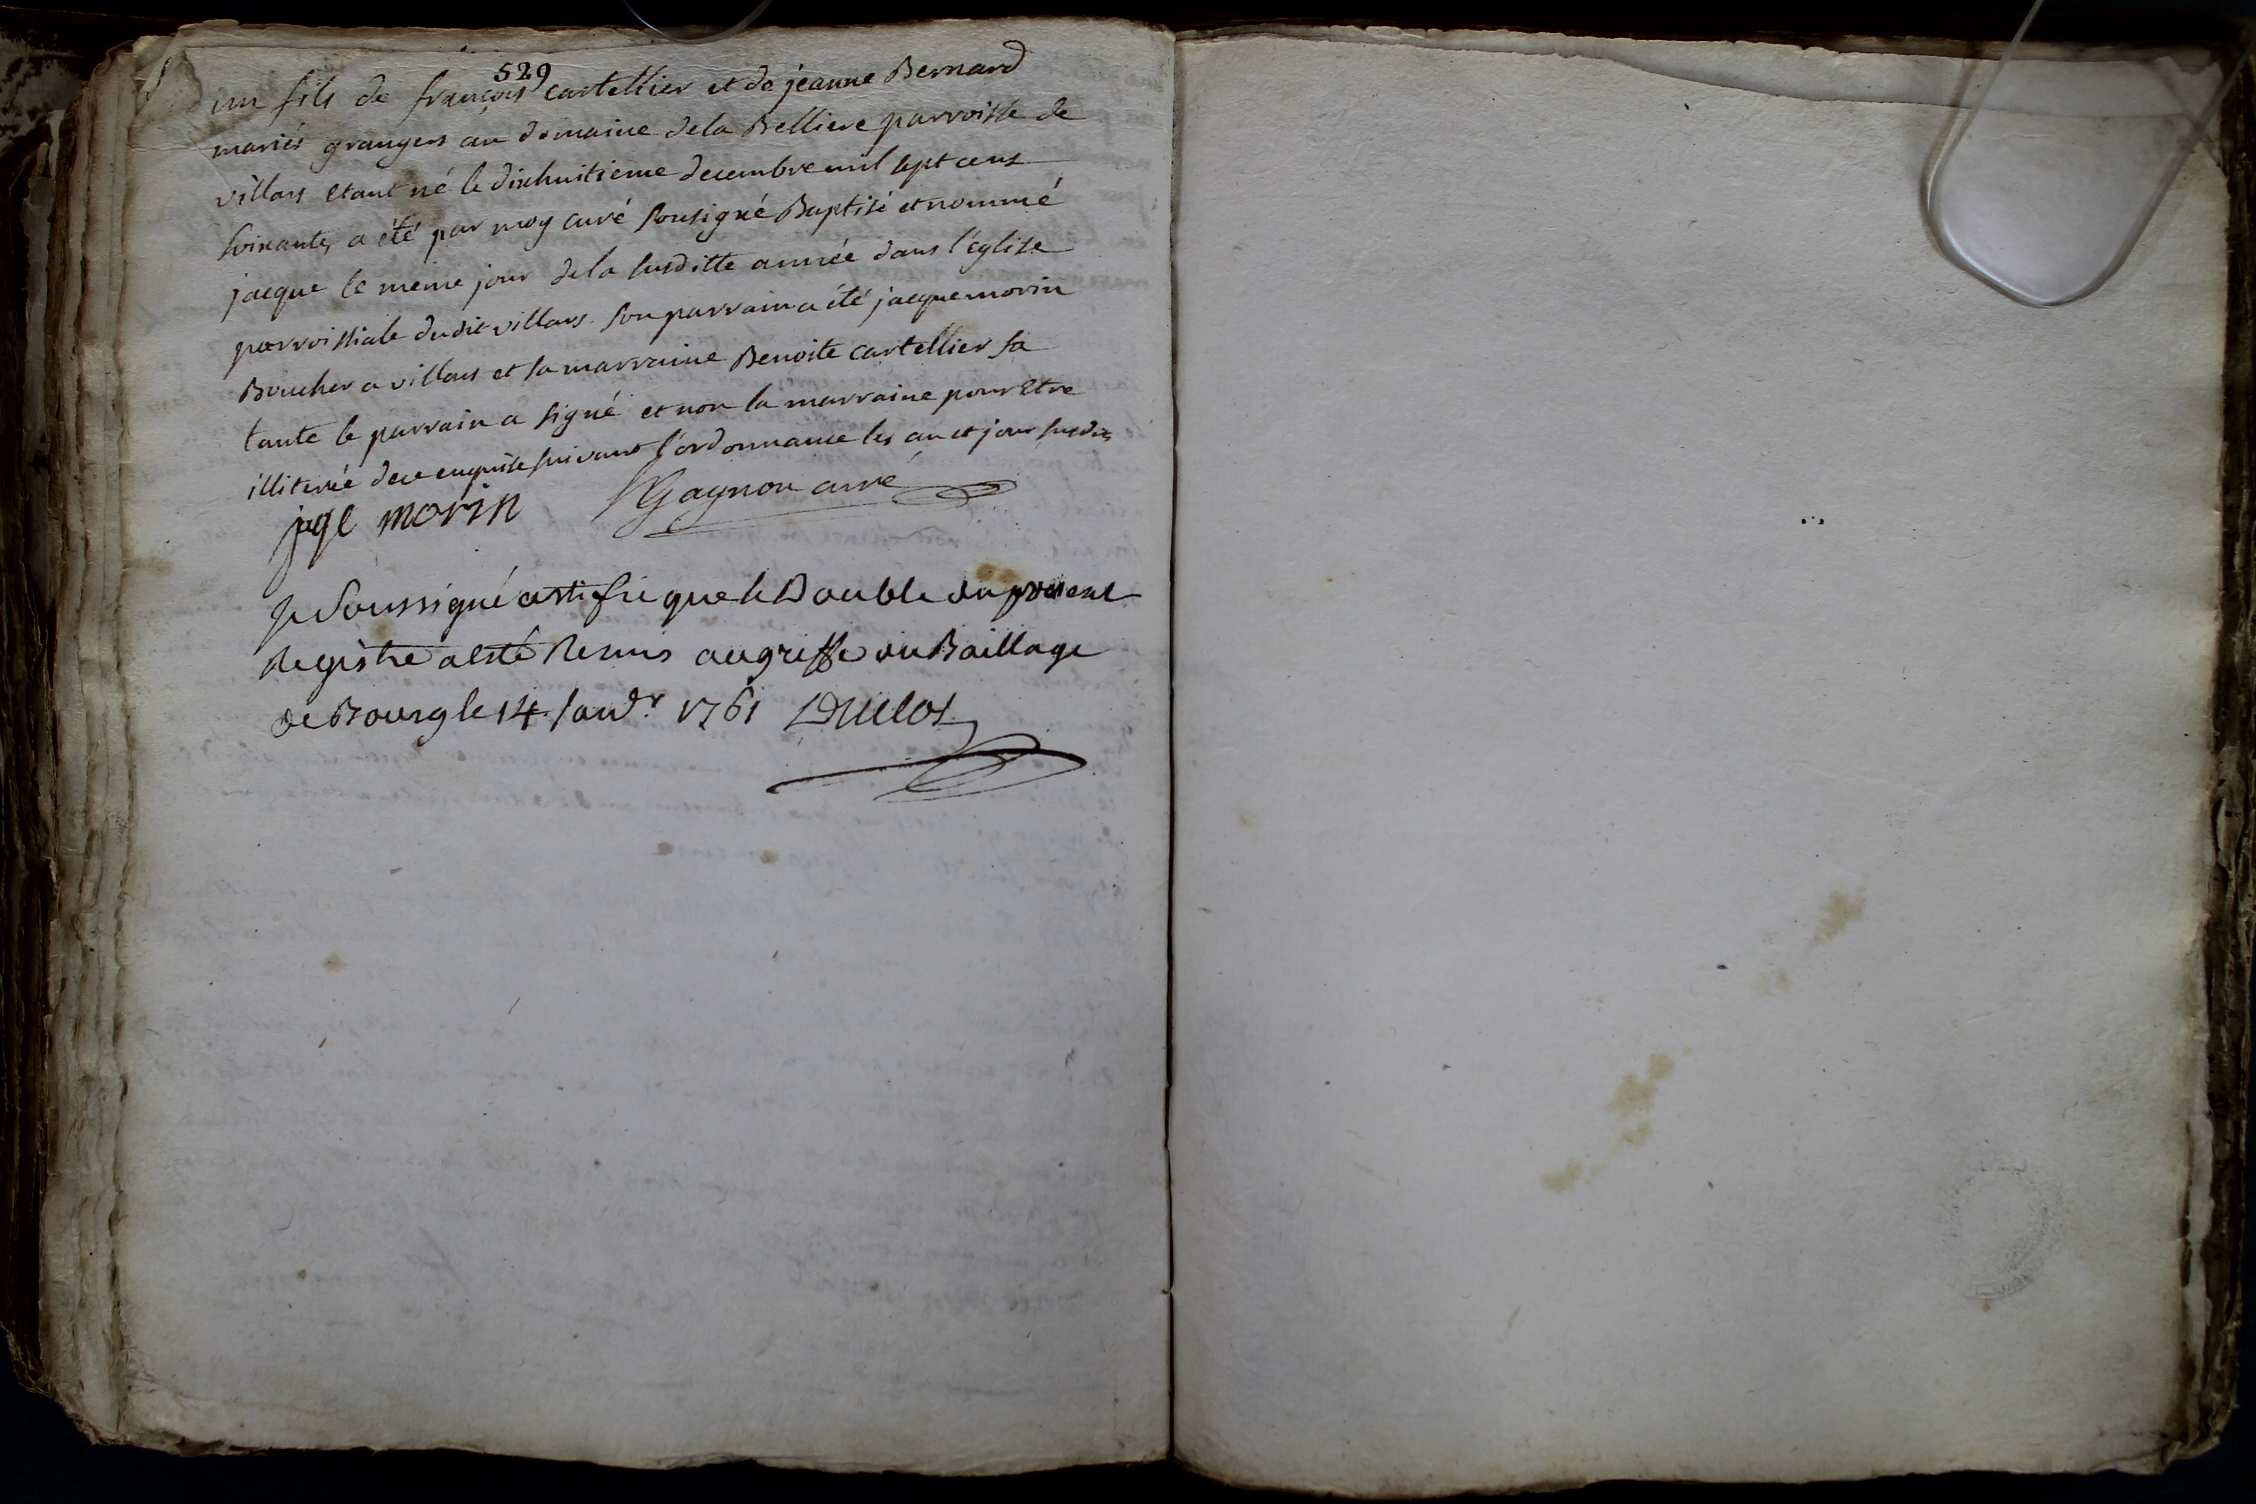 529
un fils de françois cartellier et de jeanne Bernard
mariés grangers au domaine dela Belliere parroisse de
villars etant né le dixhuitieme decembre mil sept cens
soixante, a été par moy curé sousigné Baptisé et nommé
jacque le meme jour dela susditte année dans l'église
parroissiale dudit villars. son parrain a été jacque morin
Boucher a villars et sa marraine Benoite cartellier sa
tante le parrain a signé et non la marraine pour Etre
illiterée de ce enquise suivant l'ordonnance les an et jour susdits
jaqe morin Gagnon curé
Je Soussigné certiffie que le Double du present
Registre a esté Remis au greffe du Baillage
de Bourg le 14 Janvr. 1761 Duclos